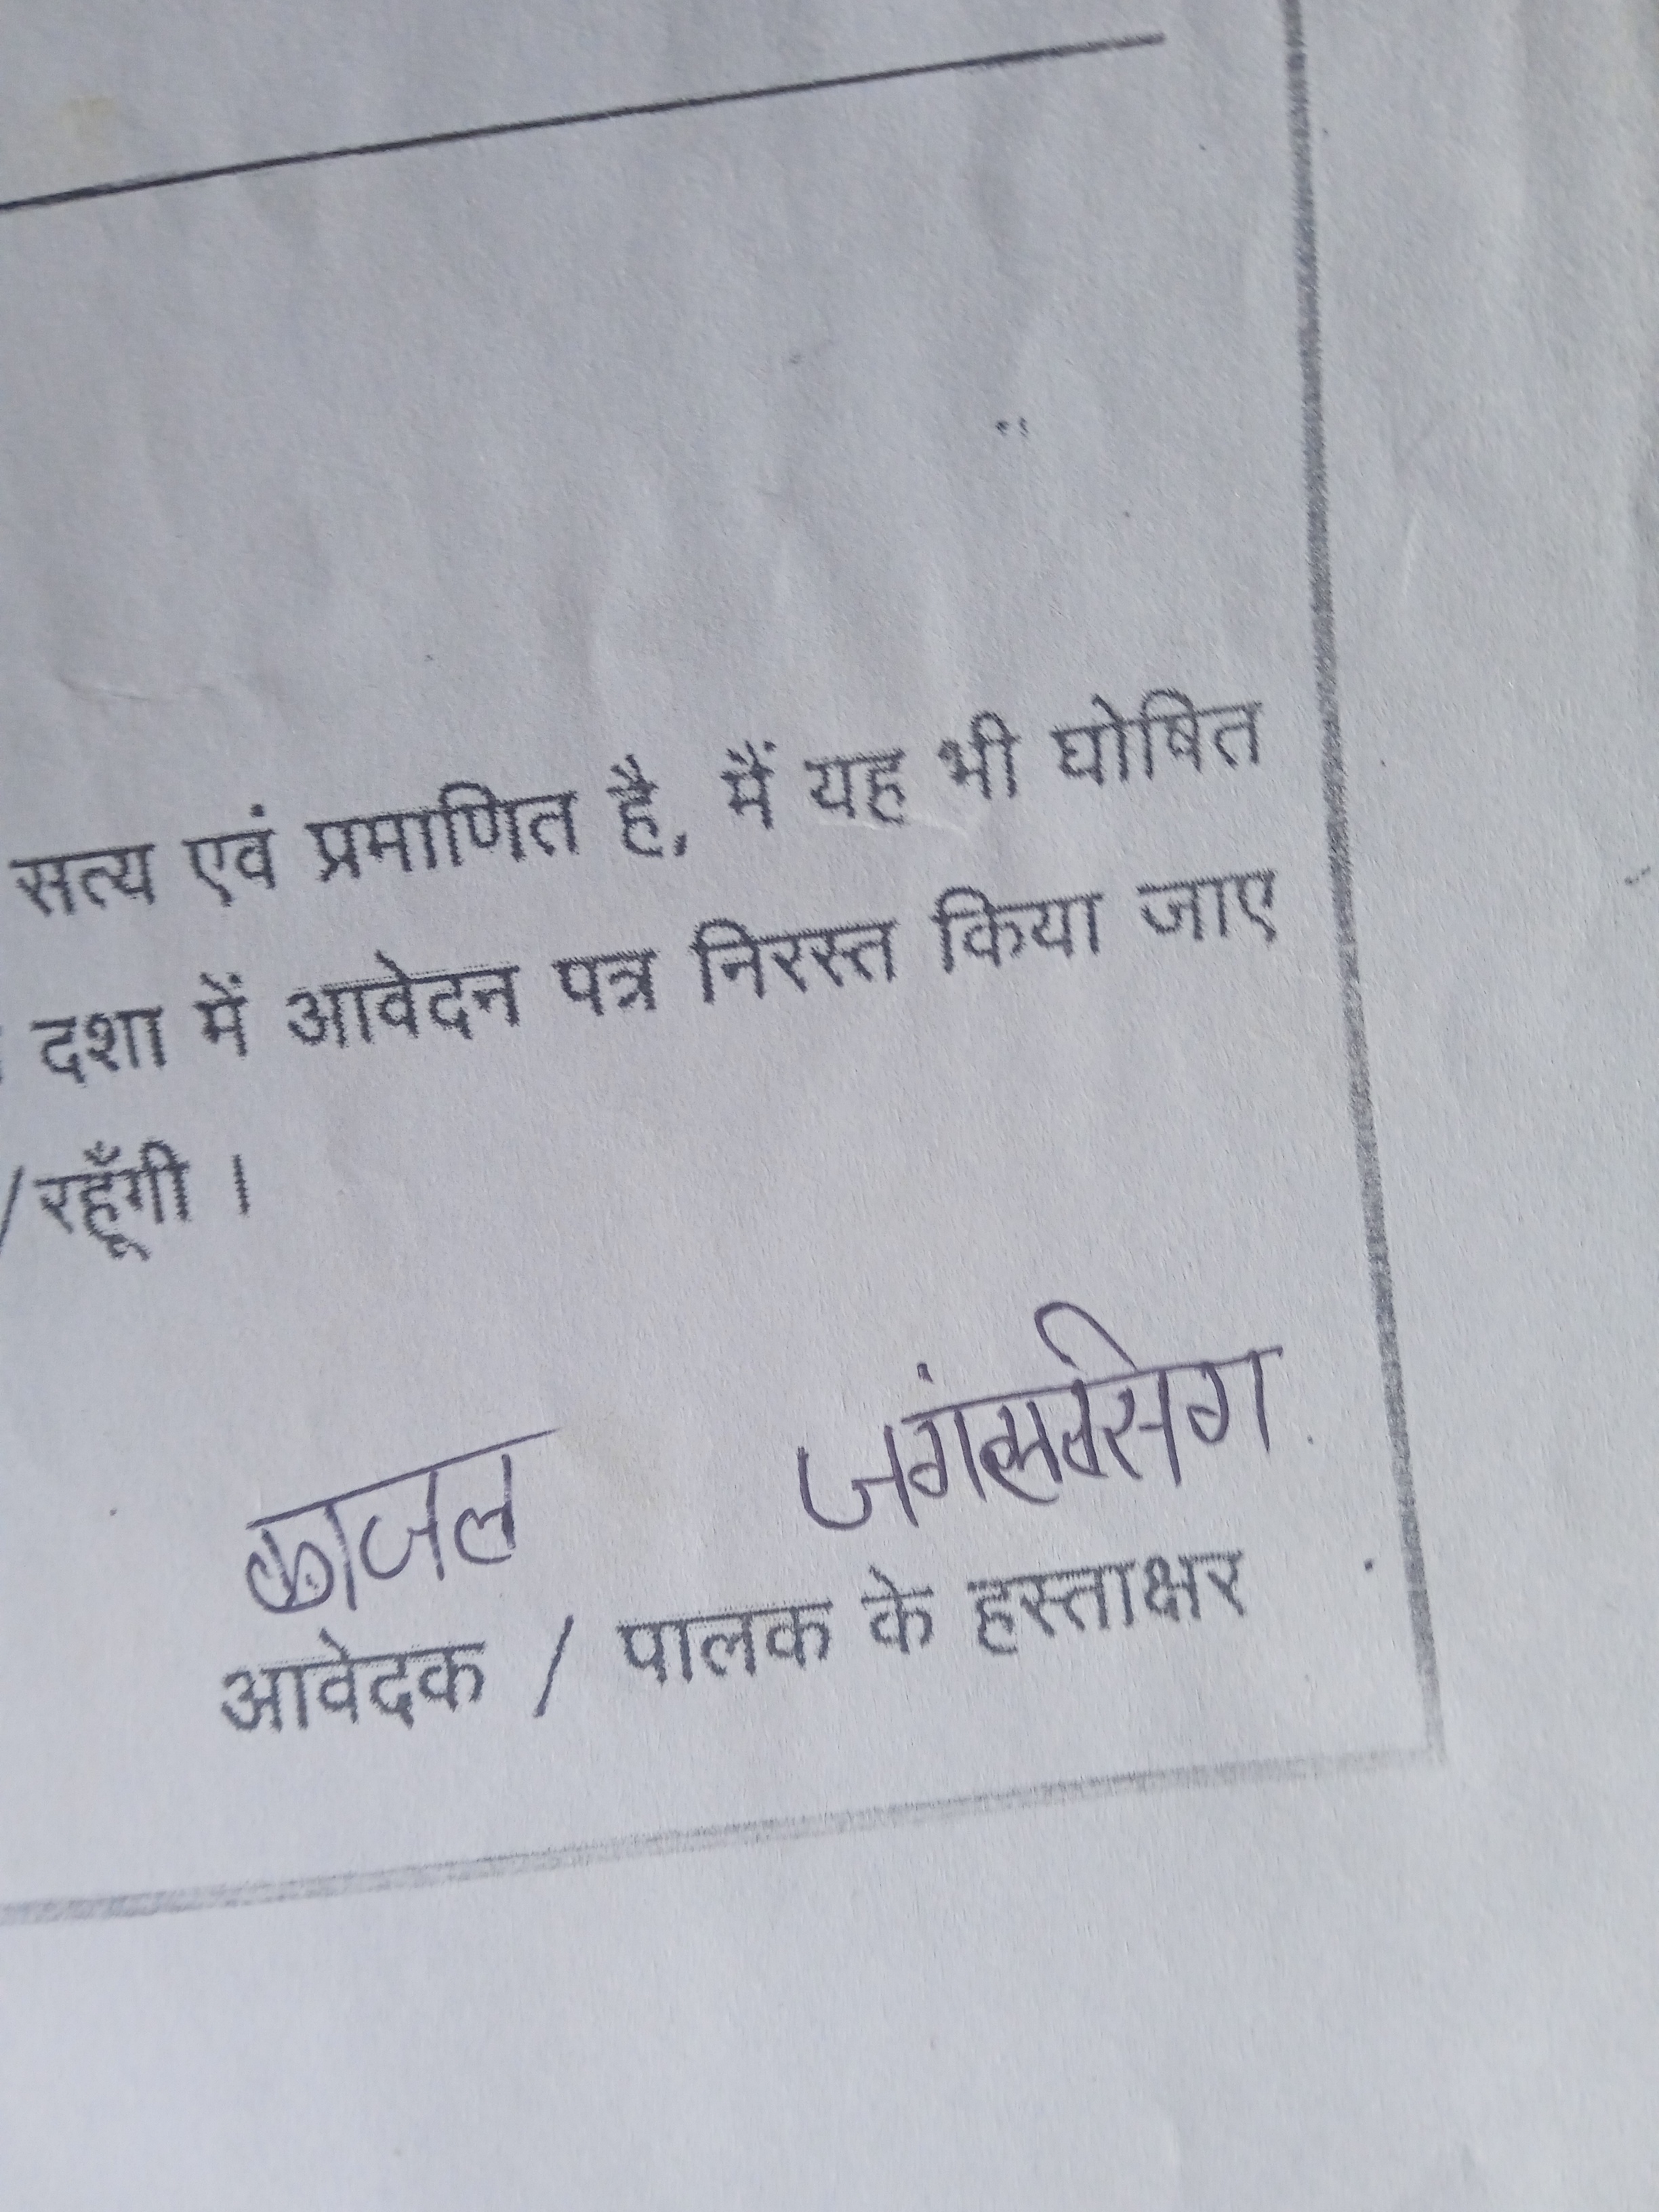 सत्य एवं प्रमाणित है, मैं यह भी घोषित
दशा में आवेदन पत्र निरस्त किया जाए
/रहूँगी ।
काजल
आवेदक / पालक के हस्ताक्षर